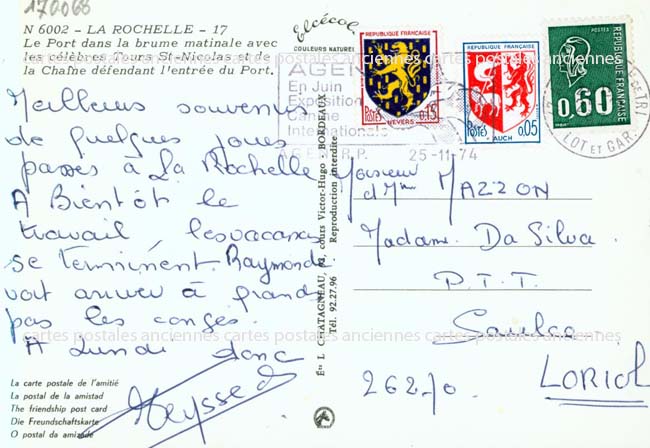 170068
N 6002 - LA ROCHELLE - 17
Le Port dans la brume matinale avec
les célèbres Tours St-Nicolas et de
la Chaîne défendant l'entrée du Port.
Meilleurs souvenirs
de quelques jours
passés à La Rochelle
A Bientôt le
travail, les vacances
se terminent. Raymonde
voit arriver à grands
pas les congés.
A Lundi donc
La carte postale de l'amitié
La postal de la amistad
The friendship post card
Die Freundschaftskarte
O postal da amizade
Elcécolor
COULEURS NATUREL
Éts L. CHATAGNEAU, 82, cours Victor-Hugo - BORDEAUX
Tél. 92.27.96 Reproduction interdite
AGEN
En Juin
Exposition
Canine
Internationale
AGEN R.P. 25-11-74
LOT ET GAR.
REPUBLIQUE FRANÇAISE
POSTES 0,15
NEVERS
REPUBLIQUE FRANÇAISE
POSTES 0,05
AUCH
POSTES
REPUBLIQUE FRANÇAISE
0,60
Monsieur
et Mme MAZZON
Madame Da Silva
P.T.T.
Saulce
26270 LORIOL
cartes postales anciennes cartes postales anciennes cartes postales anciennes